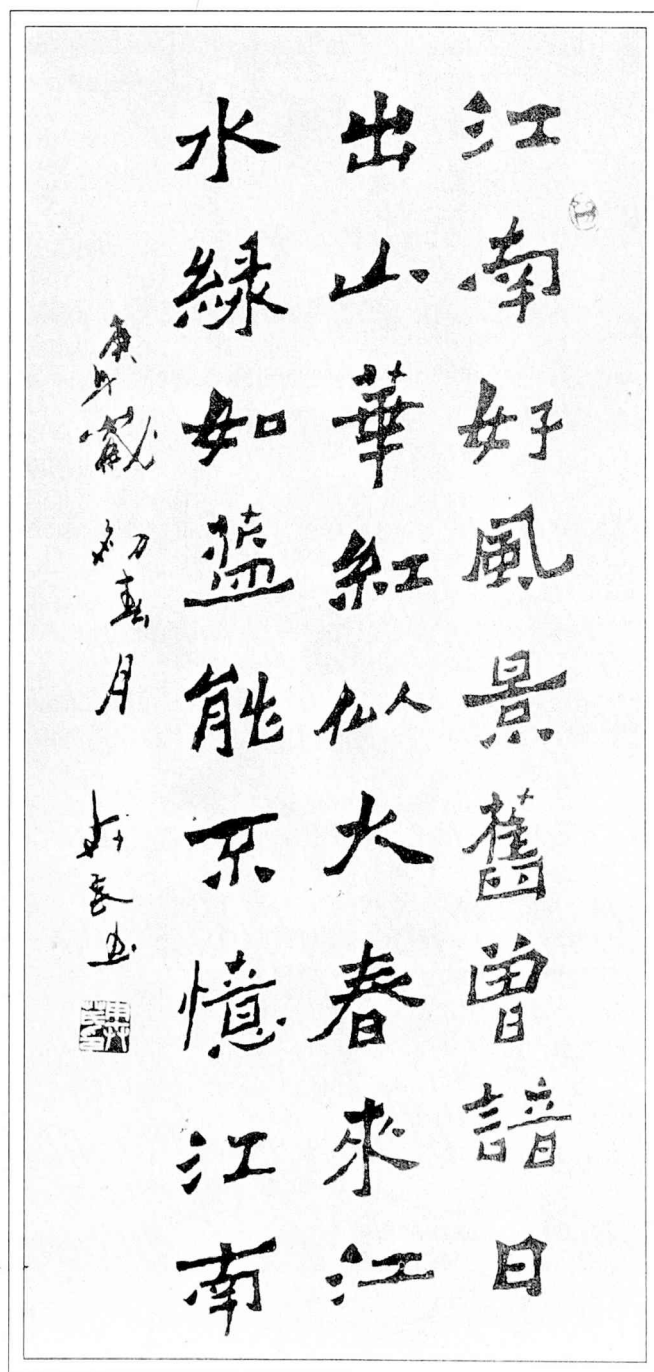 江南好風景舊曾諳日
出山華紅似火春來江
水緑如藍能不憶江南
歲初春月 書